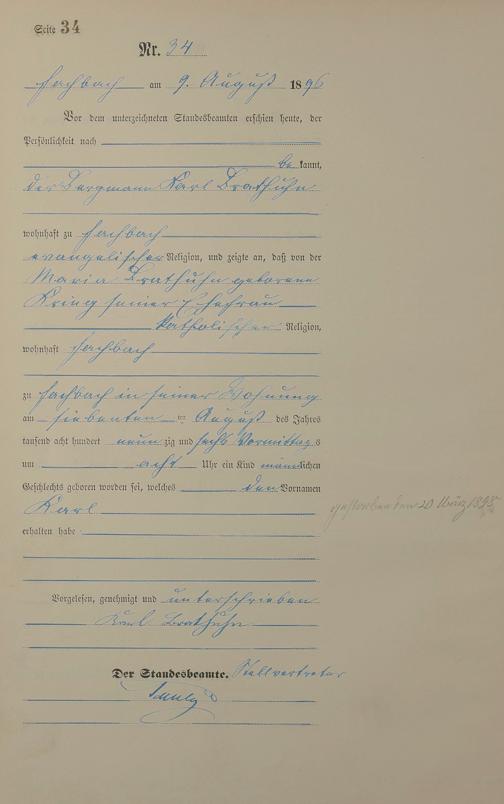 Seite 34
Nr. 34
Fachbach am 9. August 1896
Vor dem unterzeichneten Standesbeamten erschien heute, der
Persönlichkeit nach
be kannt,
der Bergmann Karl Brathuhn
wohnhaft zu Fachbach
evangelischer Religion, und zeigte an, daß von der
Maria Brathuhn geborene
Kring seiner Ehefrau
katholischer Religion,
wohnhaft Fachbach
zu Fachbach in seiner Wohnung
am siebenten ten August des Jahres
tausend acht hundert neunzig und sechs Vormittags
um acht Uhr ein Kind männlichen
Geschlechts geboren worden sei, welches den Vornamen
Karl
gestorben den 20 März 1898
erhalten habe
Vorgelesen, genehmigt und unterschrieben
Karl Brathuhn
Der Standesbeamte. Stellvertreter